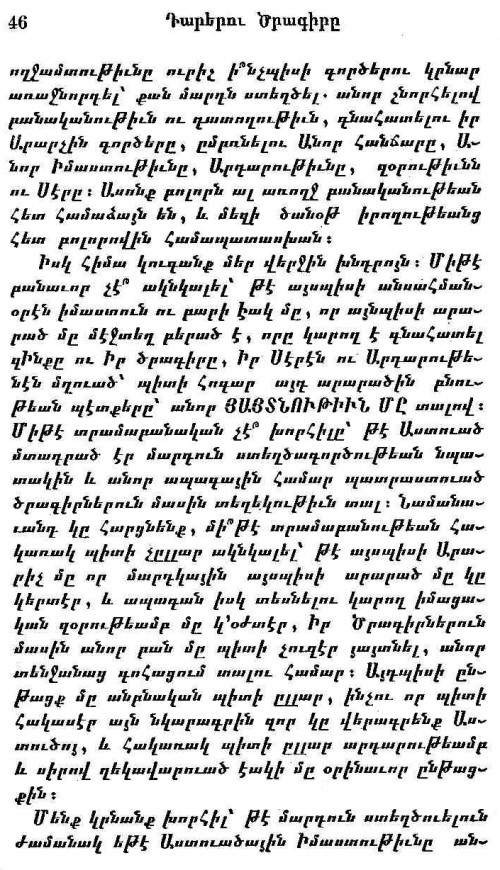 46 Դարերու Ծրագիրը
ողջամտութիւնը ուրիշ ի՞նչպիսի գործերու կրնար
առաջնորդել՝ քան մարդն ստեղծել. անոր շնորհելով
բանականութիւն ու դատողութիւն, գնահատելու իր
Արարչին գործերը, ըմբռնելու Անոր Հանճարը, Ա-
նոր Իմաստութիւնը, Արդարութիւնը, զօրութիւնն
ու Սէրը: Ասոնք բոլորն ալ առողջ բանականութեան
հետ համաձայն են, և մեզի ծանօթ իրողութեանց
հետ բոլորովին համապատասխան:
Իսկ հիմա կուգանք մեր վերջին խնդրոյն: Միթէ
բանաւոր չէ՞ ակնկալել՝ թէ այսպիսի անսահման-
օրէն իմաստուն ու բարի էակ մը, որ այնպիսի արա-
րած մը մէջտեղ բերած է, որը կարող է գնահատել
զինքը ու Իր ծրագիրը, Իր Սէրէն ու Արդարութե-
նէն մղուած՝ պիտի հոգար այդ արարածին բնու-
թեան պէտքերը՝ անոր ՅԱՅՏՆՈՒԹԻՒՆ ՄԸ տալով:
Միթէ տրամաբանական չէ՞ խորհիլը՝ թէ Աստուած
մտադրած էր մարդուն ստեղծագործութեան նպա-
տակին և անոր ապագային համար պատրաստուած
ծրագիրներուն մասին տեղեկութիւն տալ: Նամանա-
ւանդ կը հարցնենք, մի՞թէ տրամաբանութեան հա-
կառակ պիտի չըլլար ակնկալել՝ թէ այսպիսի Արա-
րիչ մը որ մարդկային այսպիսի արարած մը կը
կերտէր, և ապագան իսկ տեսնելու կարող իմացա-
կան զօրութեամբ մը կ՚օժտէր, Իր Ծրագիրներուն
մասին անոր բան մը պիտի չուզէր յայտնել, անոր
տենջանաց գոհացում տալու համար: Այդպիսի ըն-
թացք մը անբնական պիտի ըլլար, ինչու որ պիտի
հակասէր այն նկարագրին զոր կը վերագրենք Աս-
տուծոյ, և հակառակ պիտի ըլլար արդարութեամբ
և սիրով ղեկավարուած էակի մը օրինաւոր ընթաց-
քին:
Մենք կրնանք խորհիլ՝ թէ մարդուն ստեղծուելուն
ժամանակ եթէ Աստուածային Իմաստութիւնը ան-